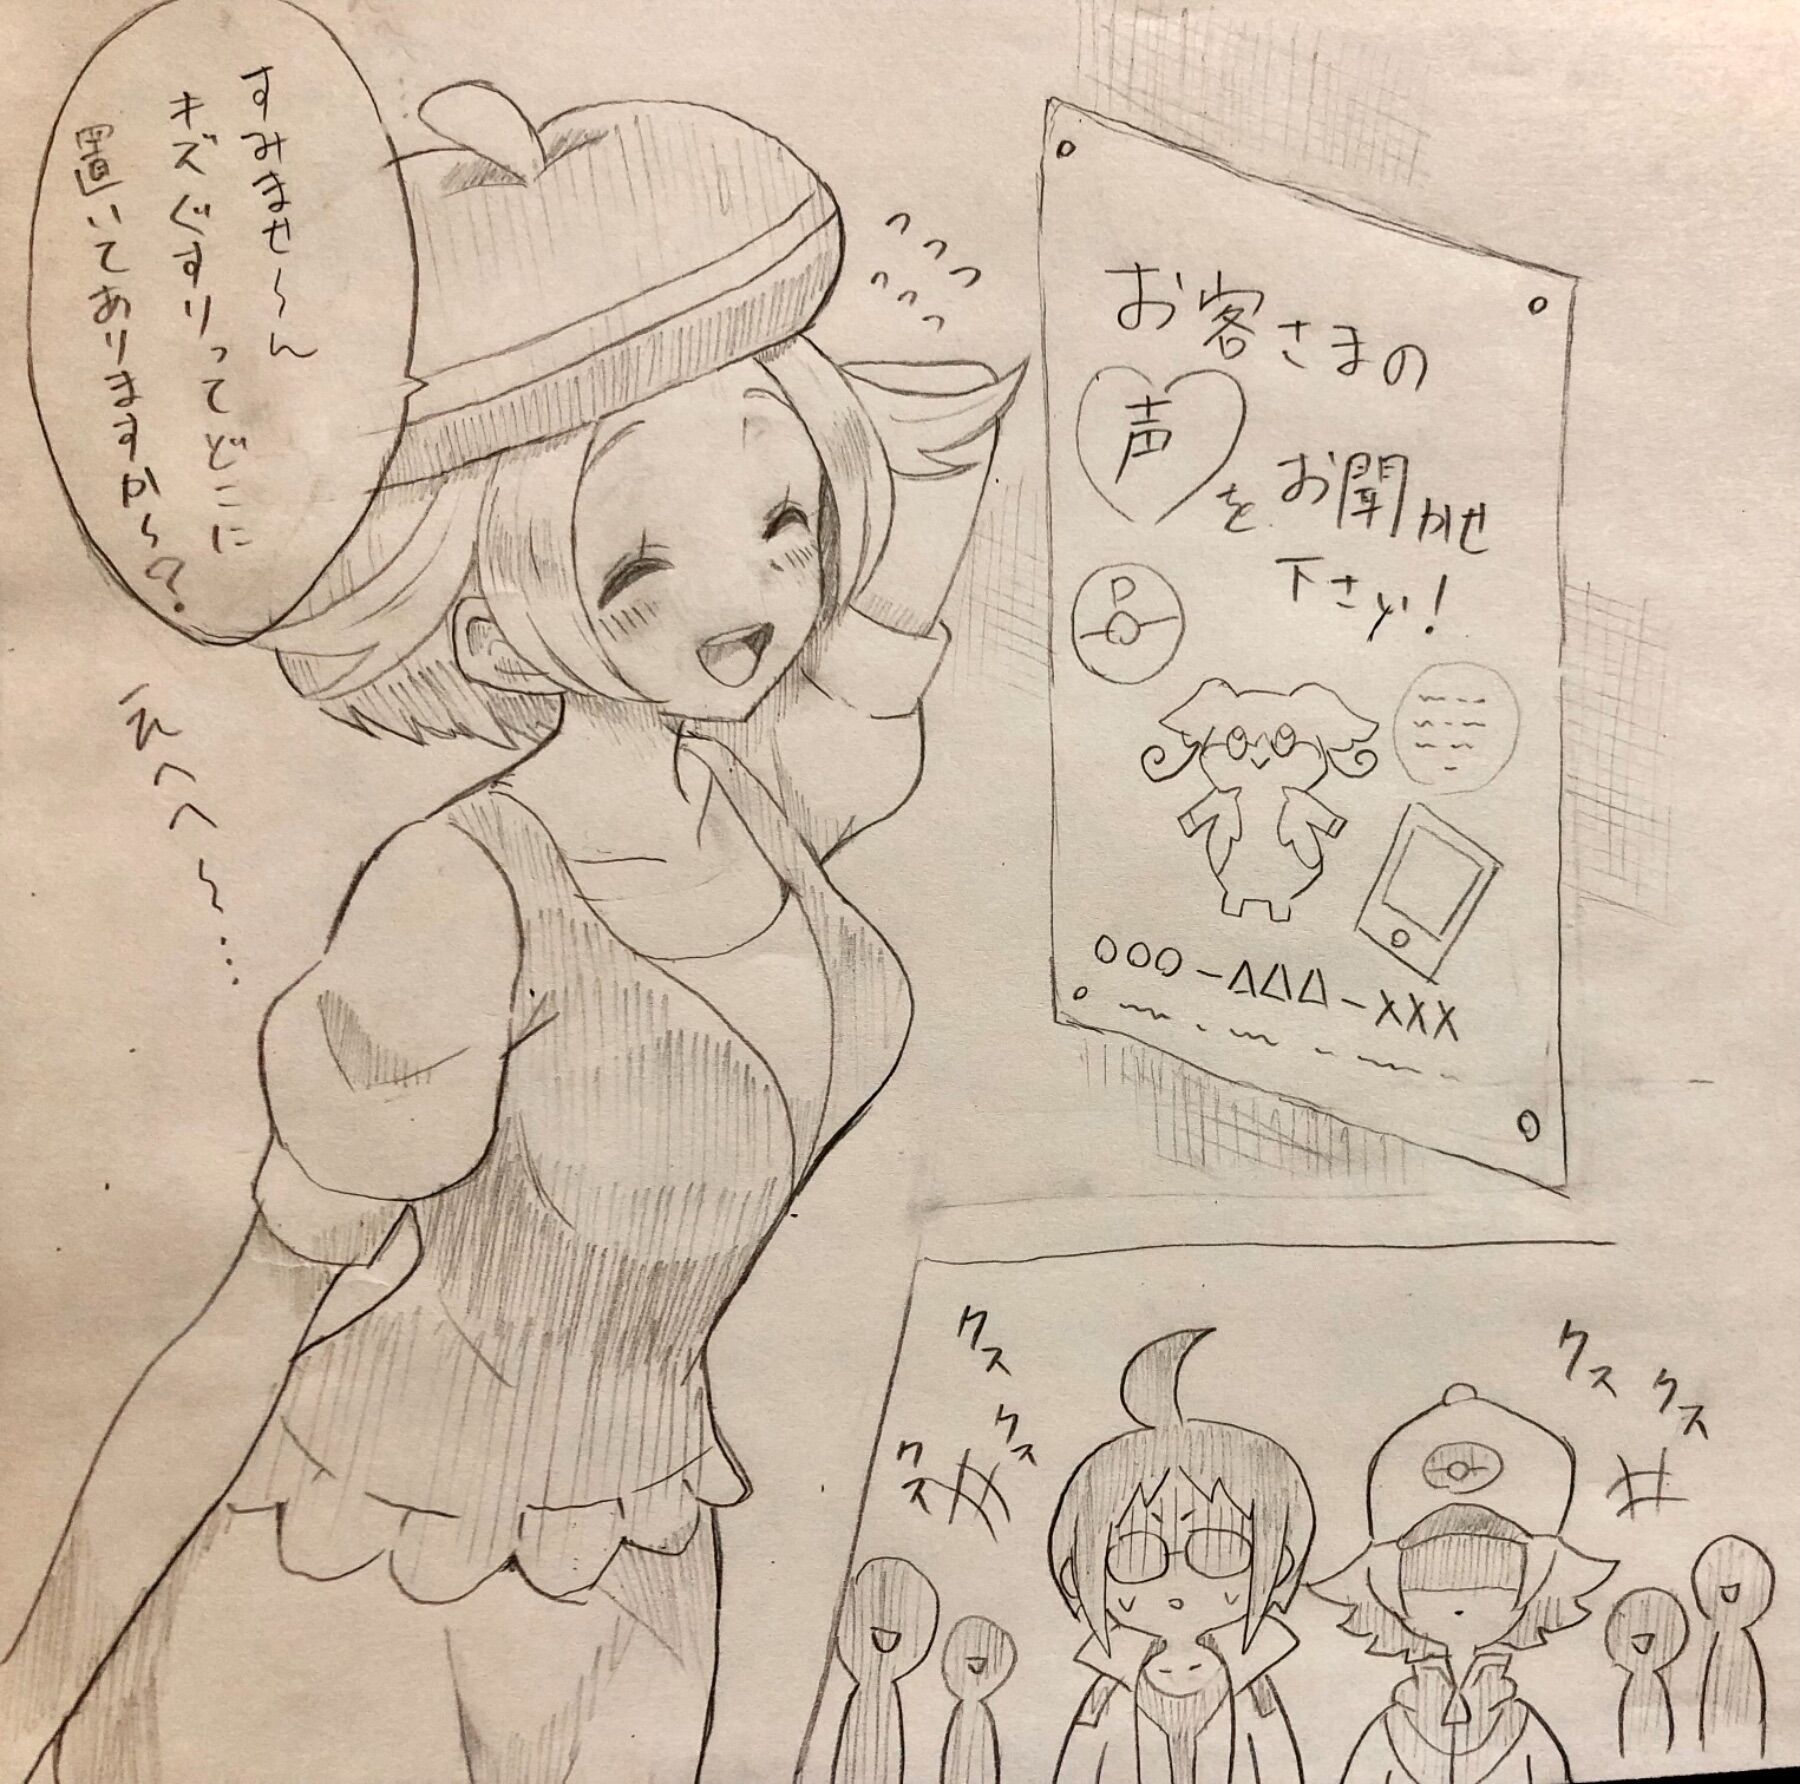 すみませ〜ん
キズぐすりってどこに
置いてありますか〜?
えへへ〜…
お客さまの
声をお聞かせ
下さい!
P
OOO-△△△-XXX
クス
クス
クス
クス
クス